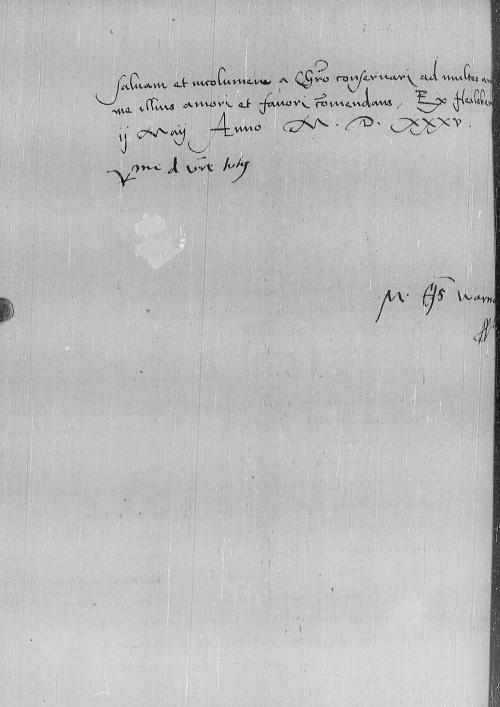 salvam et incolumem a Chr͞o conservari ad multos an
me illius amori et favori com̄endans, Ex Heilsber
ij Maij Anno M. D. XXXV.
Vm̄e d vr̄e
M. Ep͞s Warm